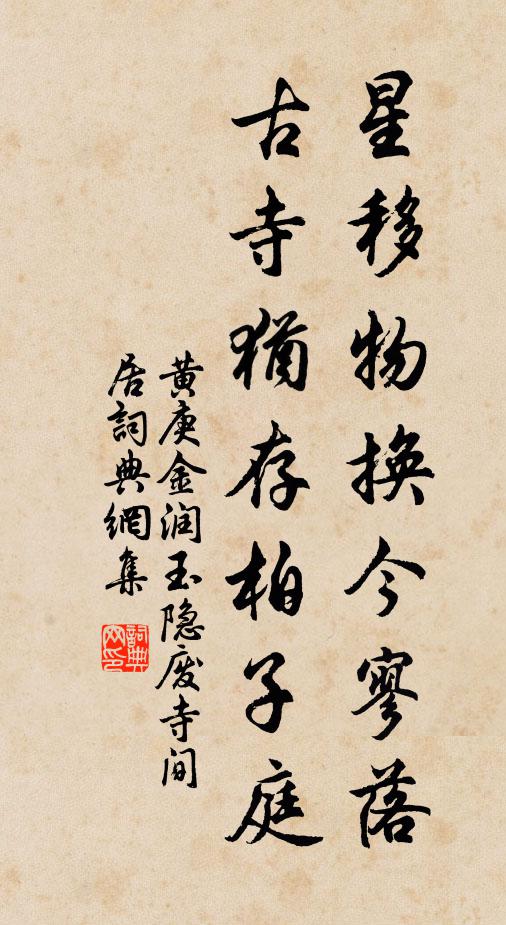 星移物換今寥落
古寺猶存柏子庭
黄庚金润玉隐废寺间
居詞典網集
詞典
网印